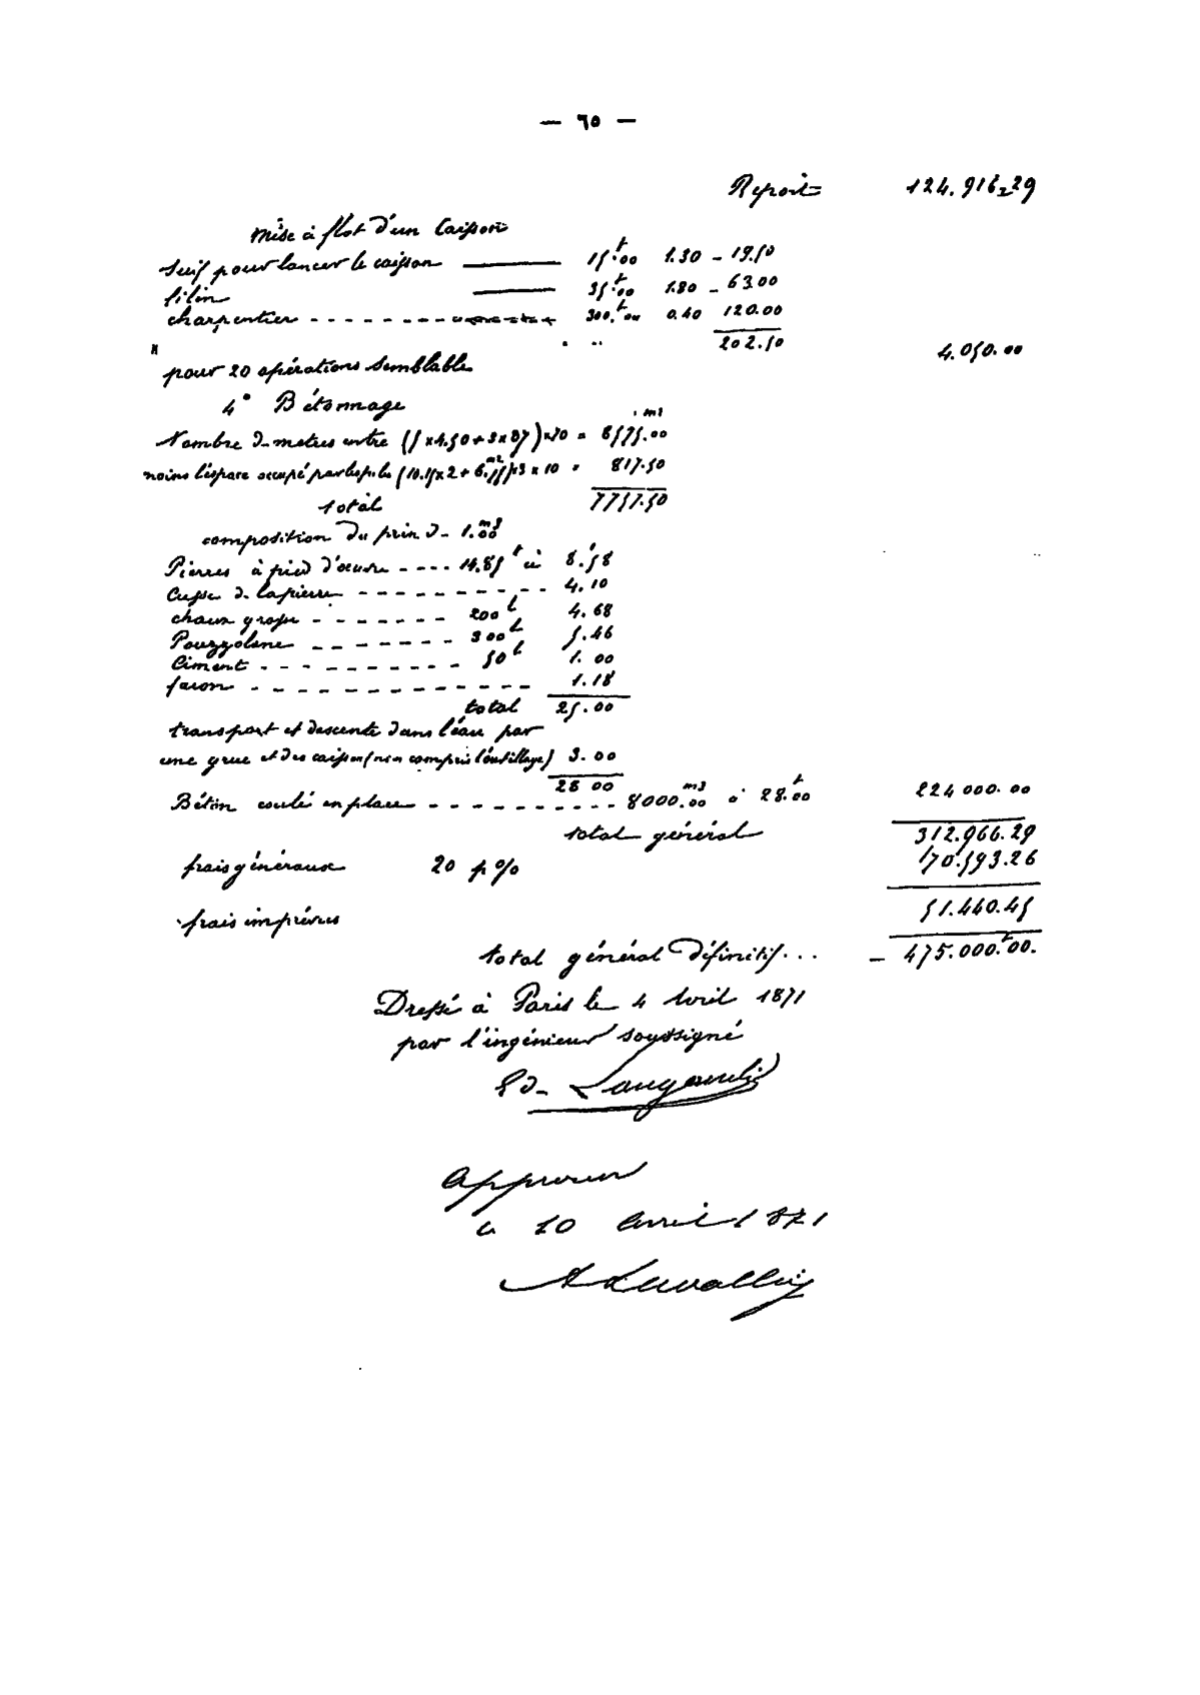 — ٦٥ —
Report 124.916.29
Mise à flot d'un Caisson
Suif pour lancer le caisson 15.00 1.30 – 19.50
filin 35.00 1.80 – 63.00
charpentier 300.00 0.40 120.00
202.50
pour 20 opérations semblable 4.050.00
4° Bétonnage
Nombre de metres entre (5 x 4.50 + 3 x 87) x 70 = 8575.00
moins l'espace occupé par les 817.50
total 7757.50
composition du prix de 1.00 m3
Pierres à pied d'œuvre 8.58
Casse de la pierre 4.10
chaux grasse 200 L 4.68
Pouzzolane 300 L 5.46
Ciment 50 L 1.00
façon 1.18
total 25.00
transport et descente dans l'eau par
une grue et des caisson (non compris l'outillage) 3.00
28 00
Béton coulé en place 8000.00 m3 à 28.00 224 000.00
total général 312.966.29
frais généraux 20 p % 170.593.26
frais imprévus 51.440.45
total général définitif... – 475.000.00.
Dressé à Paris le 4 Avril 1871
par l'ingénieur soussigné
Approuvé
le 10 avril 1871
A Lavalley